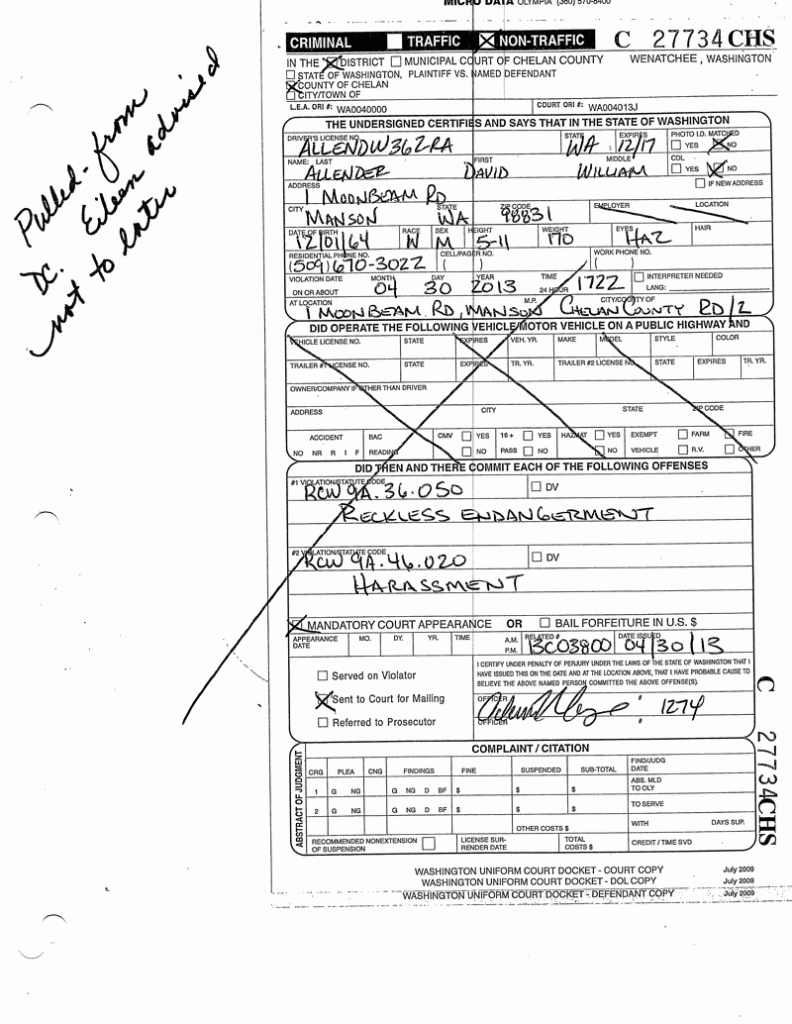 MICRO DATA OLYMPIA (360) 570-8400
CRIMINAL TRAFFIC NON-TRAFFIC C 27734 CHS
IN THE DISTRICT MUNICIPAL COURT OF CHELAN COUNTY WENATCHEE, WASHINGTON
STATE OF WASHINGTON, PLAINTIFF VS. NAMED DEFENDANT
COUNTY OF CHELAN
CITY/TOWN OF
L.E.A. ORI #: WA0040000 COURT ORI #: WA004013J
THE UNDERSIGNED CERTIFIES AND SAYS THAT IN THE STATE OF WASHINGTON
DRIVER'S LICENSE NO. STATE EXPIRES PHOTO I.D. MATCHED
ALLENDW362RA WA 12/17 YES NO
NAME: LAST FIRST MIDDLE CDL
ALLENDER DAVID WILLIAM YES NO
ADDRESS IF NEW ADDRESS
1 MOONBEAM RD
CITY STATE ZIP CODE EMPLOYER LOCATION
MANSON WA 98831
DATE OF BIRTH RACE SEX HEIGHT WEIGHT EYES HAIR
12/01/64 W M 5-11 170 HAZ
RESIDENTIAL PHONE NO. CELL/PAGER NO. WORK PHONE NO.
(509) 670-3022 ( ) ( )
VIOLATION DATE MONTH DAY YEAR TIME INTERPRETER NEEDED
ON OR ABOUT 04 30 2013 24 HOUR 1722 LANG:
AT LOCATION M.P. CITY/COUNTY OF
1 MOONBEAM RD, MANSON CHELAN COUNTY RD/2
DID OPERATE THE FOLLOWING VEHICLE/MOTOR VEHICLE ON A PUBLIC HIGHWAY AND
VEHICLE LICENSE NO. STATE EXPIRES VEH. YR. MAKE MODEL STYLE COLOR
TRAILER #1 LICENSE NO. STATE EXPIRES TR. YR. TRAILER #2 LICENSE NO. STATE EXPIRES TR. YR.
OWNER/COMPANY IF OTHER THAN DRIVER
ADDRESS CITY STATE ZIP CODE
ACCIDENT BAC CMV YES 16+ YES HAZMAT YES EXEMPT FARM FIRE
NO NR R I F READING NO PASS NO NO VEHICLE R.V. OTHER
DID THEN AND THERE COMMIT EACH OF THE FOLLOWING OFFENSES
#1 VIOLATION/STATUTE CODE DV
RCW 9A.36.050
RECKLESS ENDANGERMENT
#2 VIOLATION/STATUTE CODE DV
RCW 9A.46.020
HARASSMENT
MANDATORY COURT APPEARANCE OR BAIL FORFEITURE IN U.S. $
APPEARANCE DATE MO. DY. YR. TIME A.M. P.M. RELATED # DATE ISSUED
13C03800 04/30/13
I CERTIFY UNDER PENALTY OF PERJURY UNDER THE LAWS OF THE STATE OF WASHINGTON THAT I
HAVE ISSUED THIS ON THE DATE AND AT THE LOCATION ABOVE, THAT I HAVE PROBABLE CAUSE TO
BELIEVE THE ABOVE NAMED PERSON COMMITTED THE ABOVE OFFENSE(S).
Served on Violator
Sent to Court for Mailing
Referred to Prosecutor
OFFICER 1274
OFFICER
C 27734CHS
COMPLAINT / CITATION
ABSTRACT OF JUDGMENT
CRG PLEA CNG FINDINGS FINE SUSPENDED SUB-TOTAL FIND/JUDG DATE
1 G NG G NG D BF $ $ $ ABS. MLD TO OLY
2 G NG G NG D BF $ $ $ TO SERVE
OTHER COSTS $ WITH DAYS SUP.
RECOMMENDED NONEXTENSION OF SUSPENSION LICENSE SURRENDER DATE TOTAL COSTS $ CREDIT / TIME SVD
WASHINGTON UNIFORM COURT DOCKET - COURT COPY July 2009
WASHINGTON UNIFORM COURT DOCKET - DOL COPY July 2009
WASHINGTON UNIFORM COURT DOCKET - DEFENDANT COPY July 2009
Pulled - from
DC. Eileen advised
not to enter